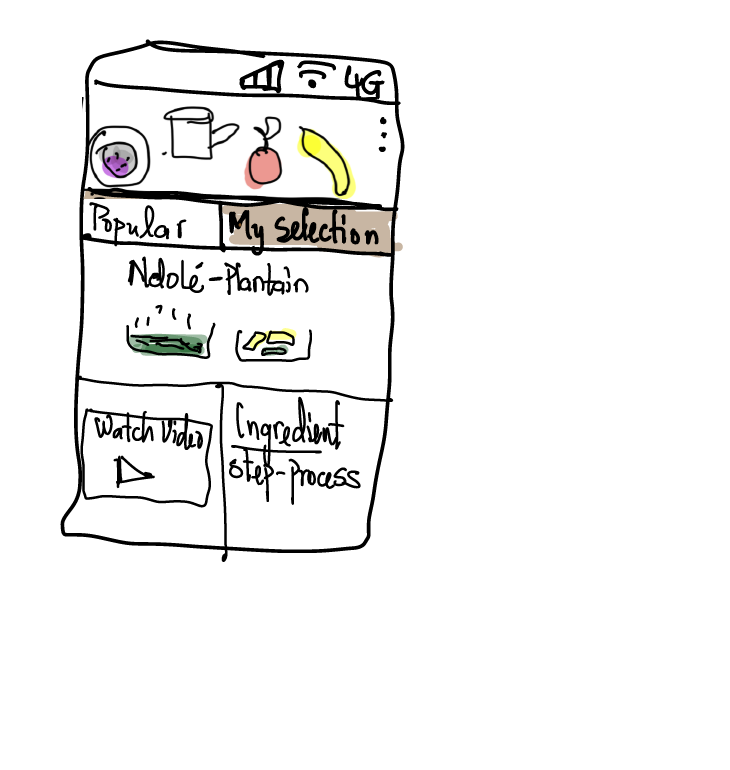 4G
Popular
My Selection
Ndolé-Plantain
Watch Video
Ingredient
step-process